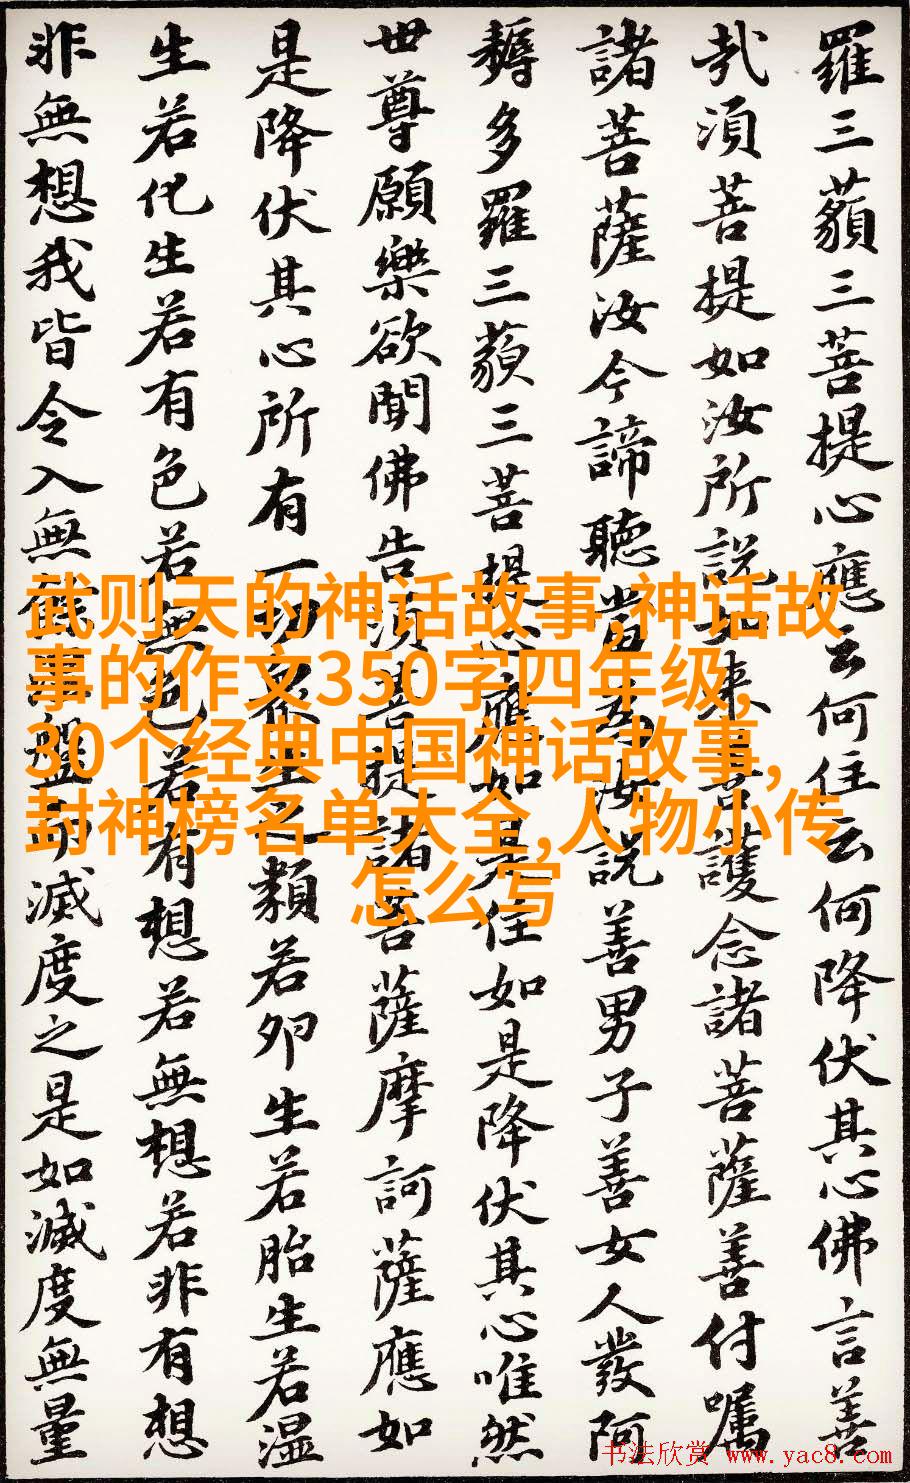 羅三藐三菩提心應云何住云何降伏其心佛言善
哉須菩提如汝所説如来善護念諸菩薩善付囑
諸菩薩汝今諦聽當為汝説善男子善女人發阿
耨多羅三藐三菩提心應如是住如是降伏其心唯然
世尊願樂欲聞佛告須菩提諸菩薩摩訶薩應如
是降伏其心所有一切衆生之類若卵生若胎生若湿
生若化生若有色若無色若有想若無想若非有想
非無想我皆令入無餘涅盤而滅度之是如滅度無量
武则天的神话故事-神话故
事的作文350字四年级,
30个经典中国神话故事,
封神榜名单大全,人物小传
怎么写
书法欣赏 www.yac8.com